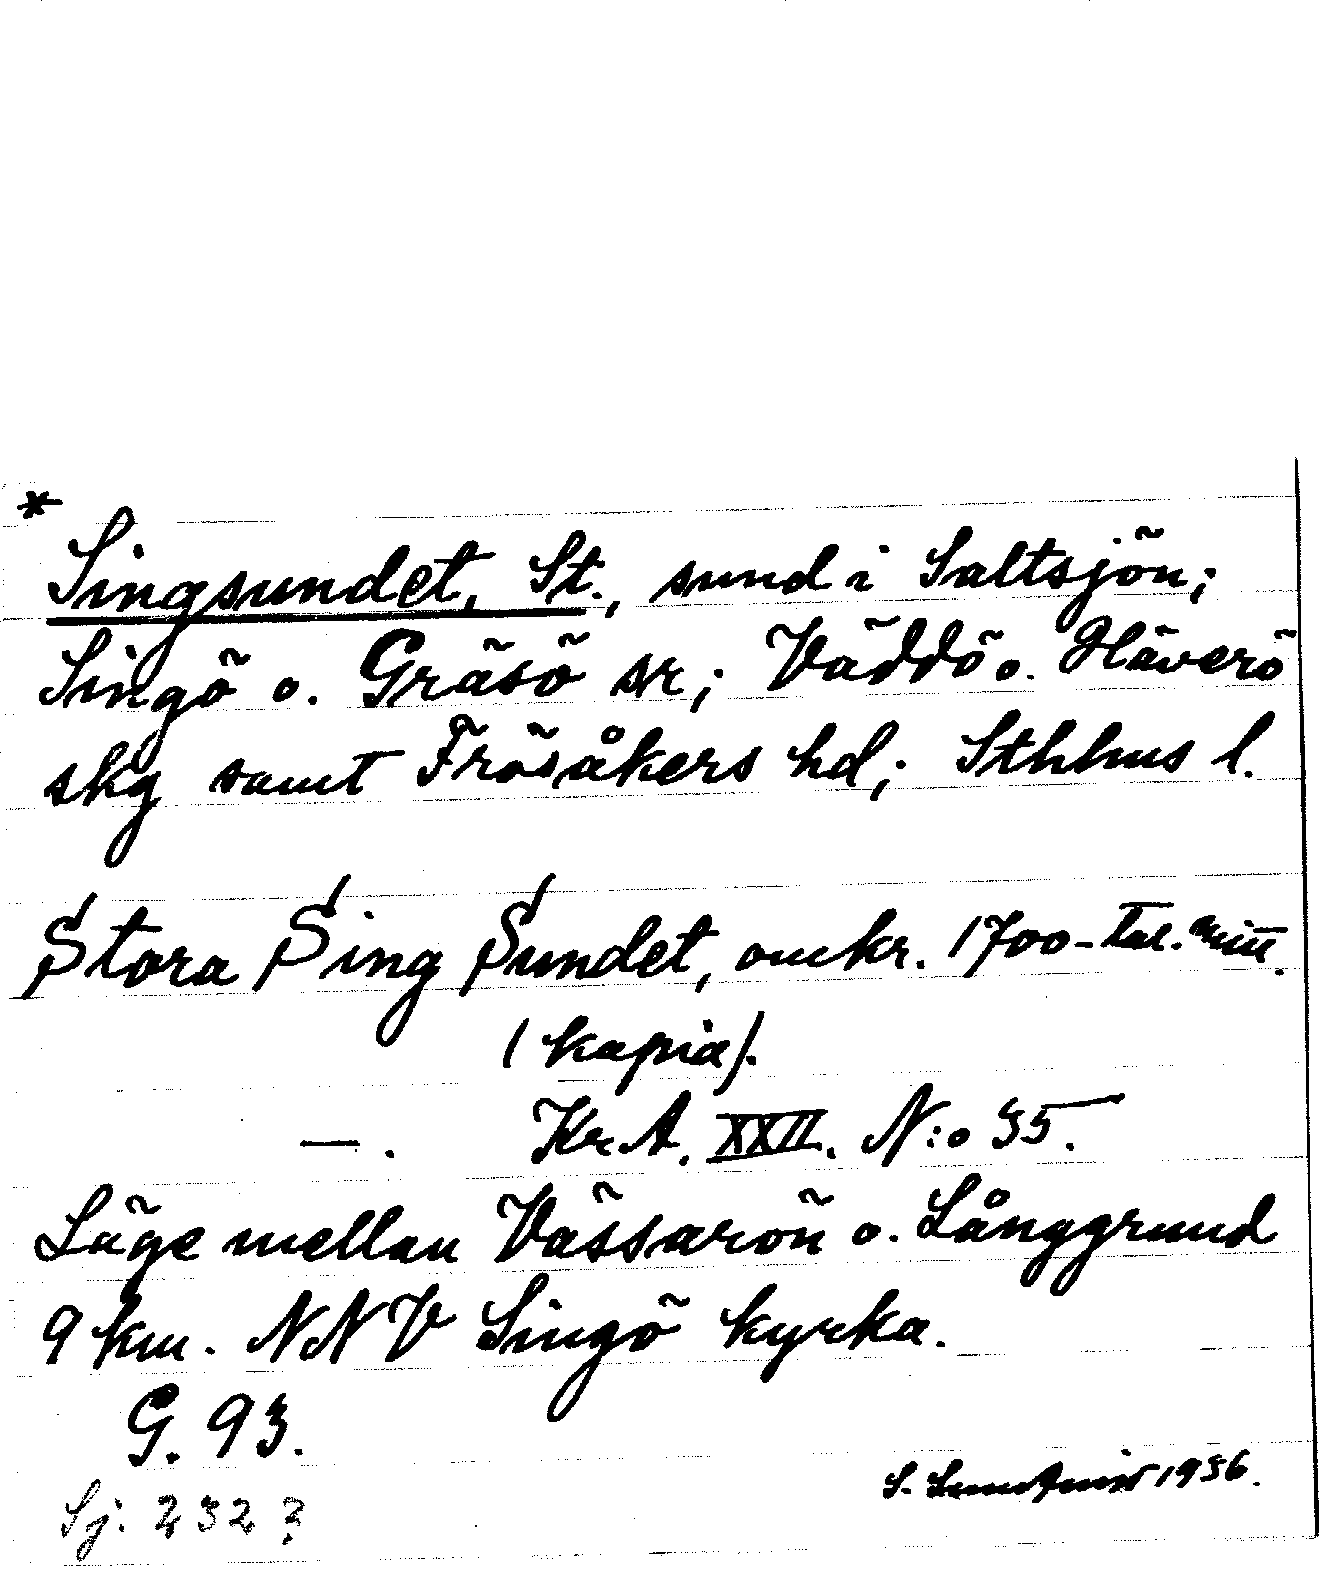 *
Singsundet, St., sund i Saltsjön;
Singö o. Gräsö sr; Väddö o. Häverö
skg samt Frösåkers hd; Sthlms l.
Stora Sing Sundet, omkr. 1700-tal. mitt.
(kopia).
—. Kr. A. XXII. N:o 35.
Läge mellan Vässarön o. Långgrund
9 km. NNV Singö kyrka.
G. 93.
S. 1936.
Sj. 232?